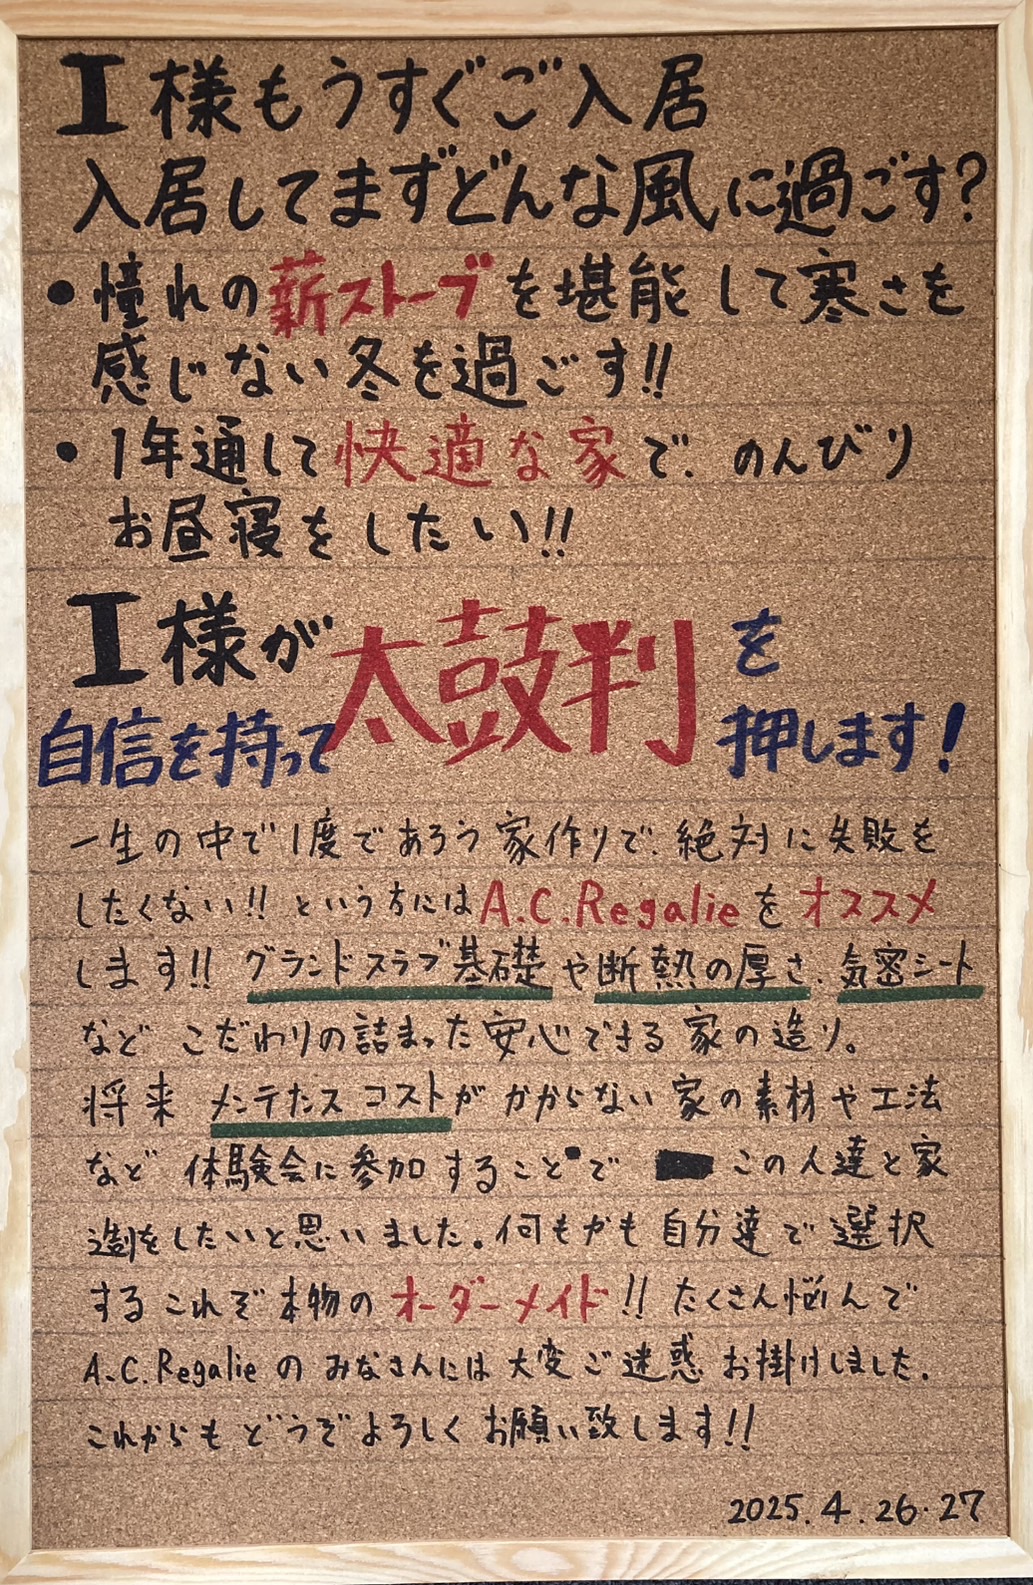 I様もうすぐご入居
入居してまずどんな風に過ごす?
・憧れの薪ストーブを堪能して寒さを
感じない冬を過ごす!!
・1年通して快適な家で、のんびり
お昼寝をしたい!!
I様が太鼓判を
自信を持って押します!
一生の中で1度であろう家作りで、絶対に失敗を
したくない!!という方にはA.C.Regalieをオススメ
します!!グランドスラブ基礎や断熱の厚さ、気密シート
などこだわりの詰まった安心できる家の造り。
将来メンテナスコストがかからない家の素材や工法
など体験会に参加することでこの人達と家
造りをしたいと思いました。何もかも自分達で選択
するこれぞ本物のオーダーメイド!!たくさん悩んで
A.C.Regalieのみなさんには大変ご迷惑お掛けしました。
これからもどうぞよろしくお願い致します!!
2025.4.26・27